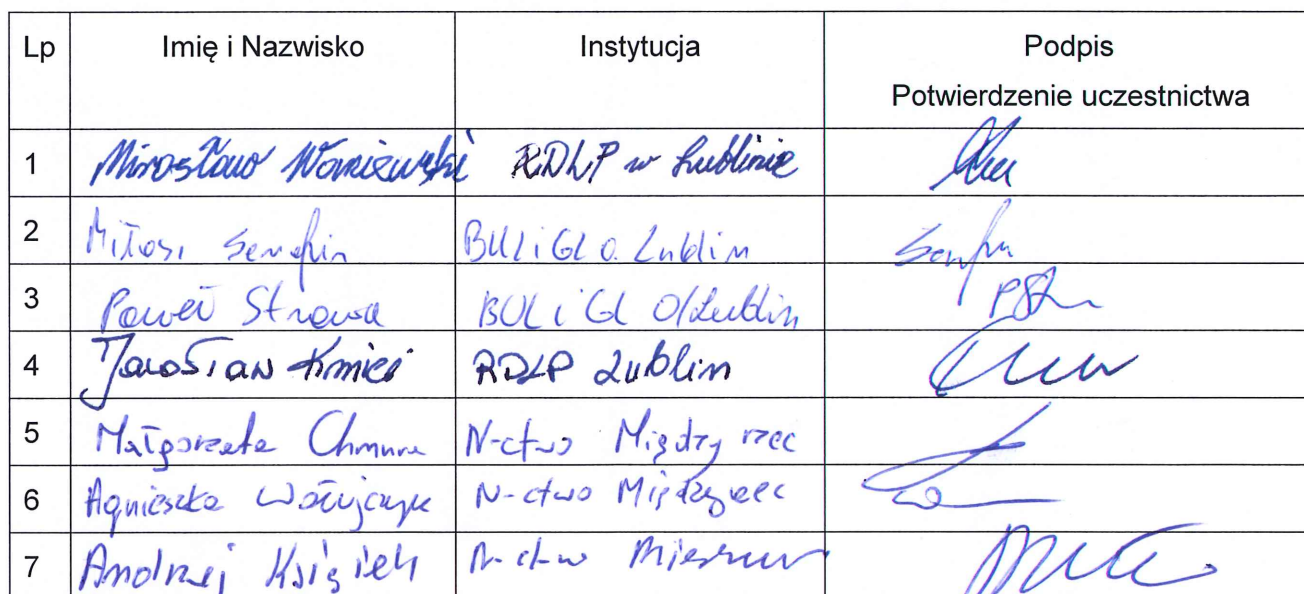 Lp Imię i Nazwisko Instytucja Podpis
Potwierdzenie uczestnictwa
1 Mirosław RDLP w Lublinie
2 Miłosz Serafin BULiGL O. Lublin
3 Paweł Strawa BULiGL O/Lublin
4 Jarosław Kmieć RDLP Lublin
5 Małgorzata Chmura N-ctwo Międzyrzec
6 Agnieszka N-ctwo Międzyrzec
7 Andrzej Książek N-ctwo